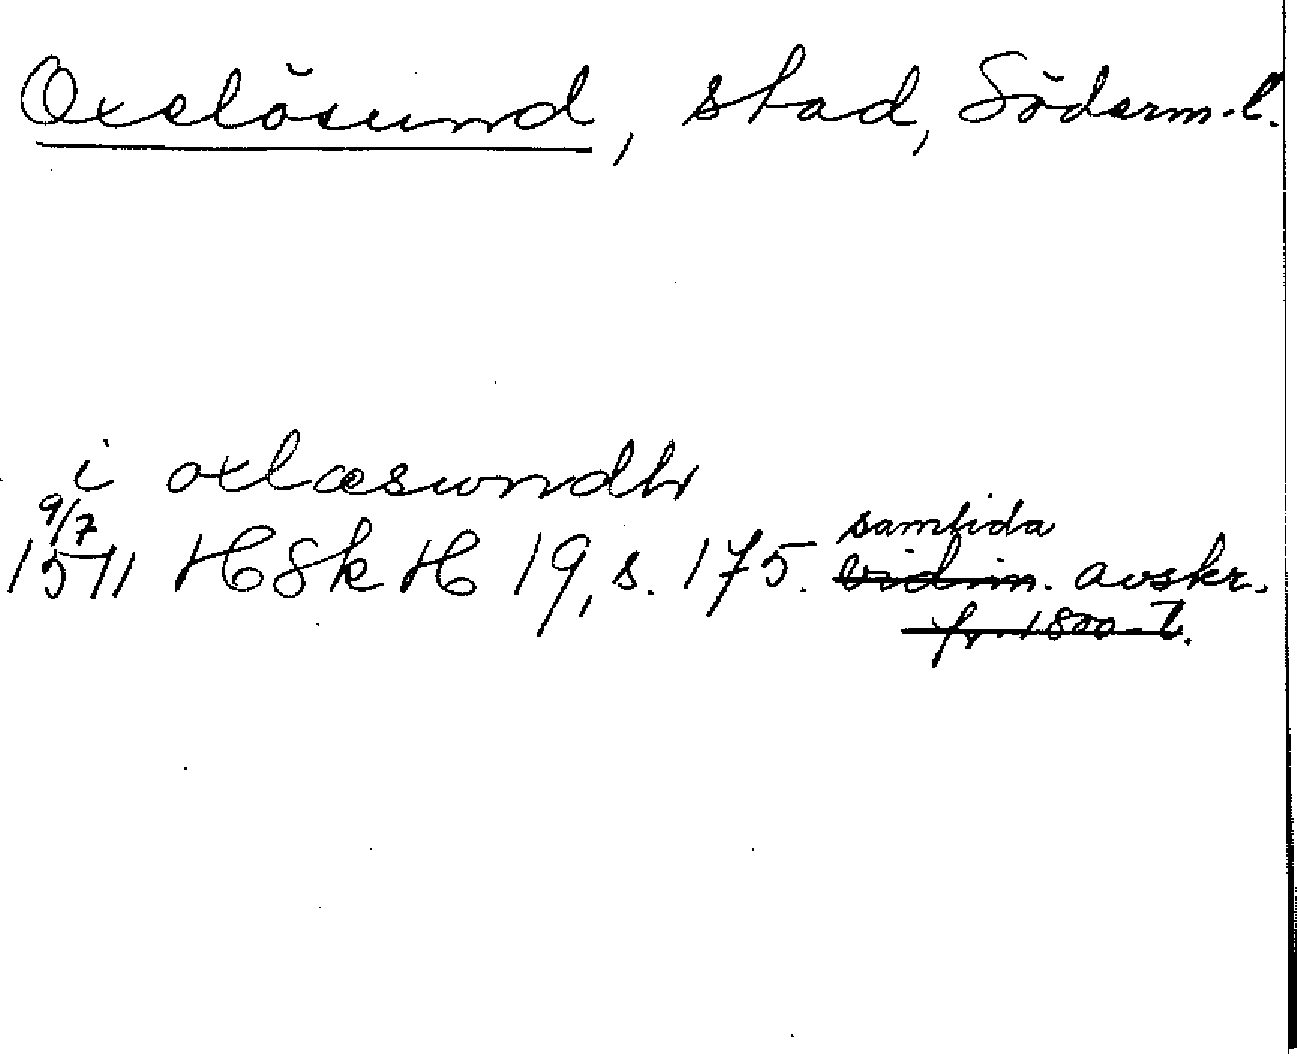 Oxelösund, stad, Söderm.l.
i oxlæsundh
9/7
samtida
1511 HSkH 19, s. 175. vidim. avskr.
fr. 1800-t.